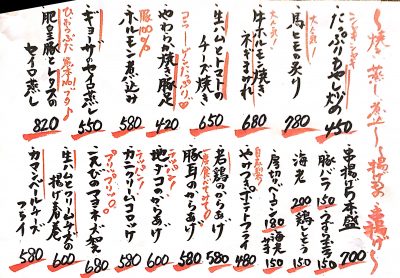 〜焼き・蒸し・煮込み〜
たっぷりもやし炒め
450
大人気!
馬ヒモの炙り
780
大人気!
牛ホルモンと
ネギまみれ
680
生ハムとトマトの
チーズ焼き
650
コラーゲンたっぷり♡
やわらか焼き豚足
420
豚100%
ホルモン煮込み
580
ギョーザのセイロ蒸し
550
肥後豚とレタスの
セイロ蒸し
820
〜揚げ物・串揚げ〜
串揚げ5本盛
700
豚バラ150 うずら150
海老200 鶏しそ150
厚切ベーコン180
やみつきポテトフライ
480
若鶏のからあげ
580
豚耳のからあげ
580
地ダコのからあげ
600
カニクリームコロッケ
580
プリップリ
こえびのマヨネーズ和え
680
生ハムとクリームチーズの
揚げ春巻
600
カマンベールチーズ
フライ
580